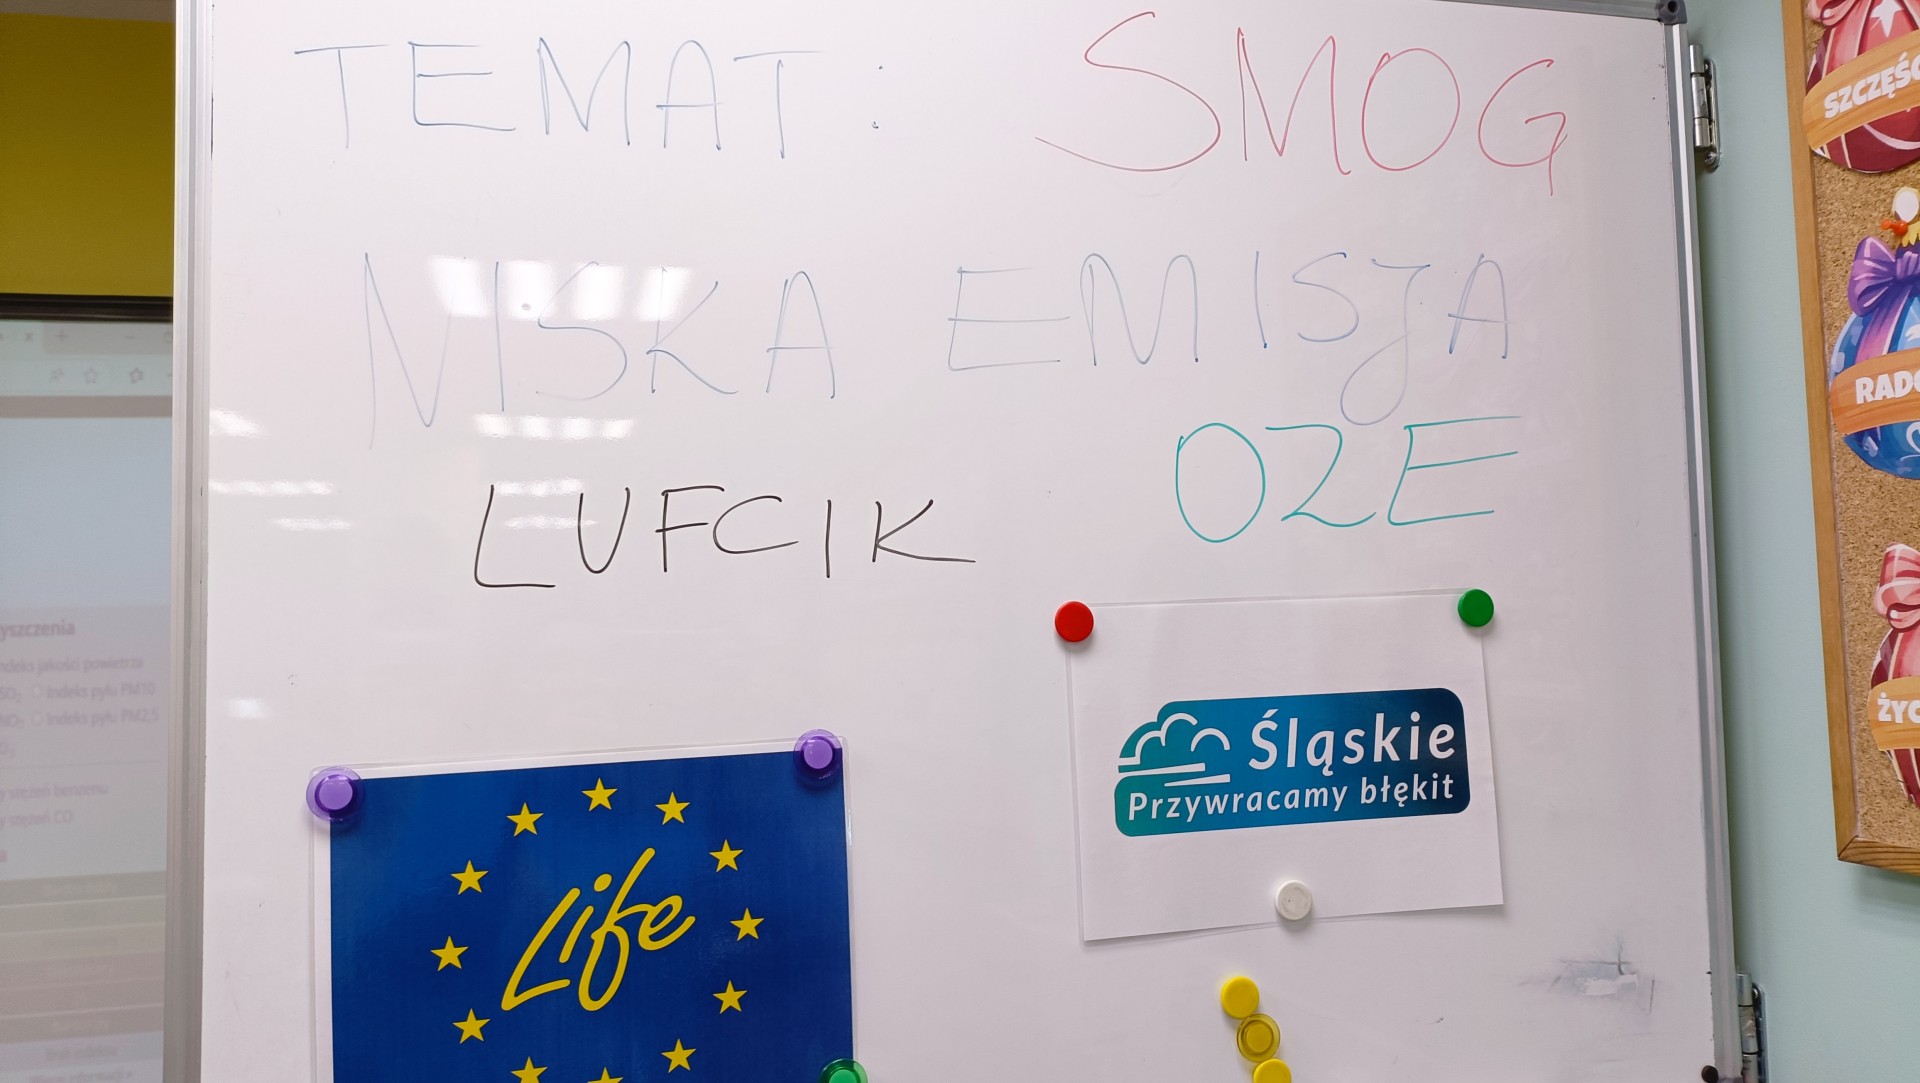 TEMAT: SMOG
NISKA EMISJA
LUFCIK OZE
Śląskie
Przywracamy błękit
Life
yszczenia
ndeks jakości powietrza
SO₂ Indeks pyłu PM10
NO₂ Indeks pyłu PM2.5
y stężeń benzenu
y stężeń CO
SZCZĘŚ
RADO
ŻYC